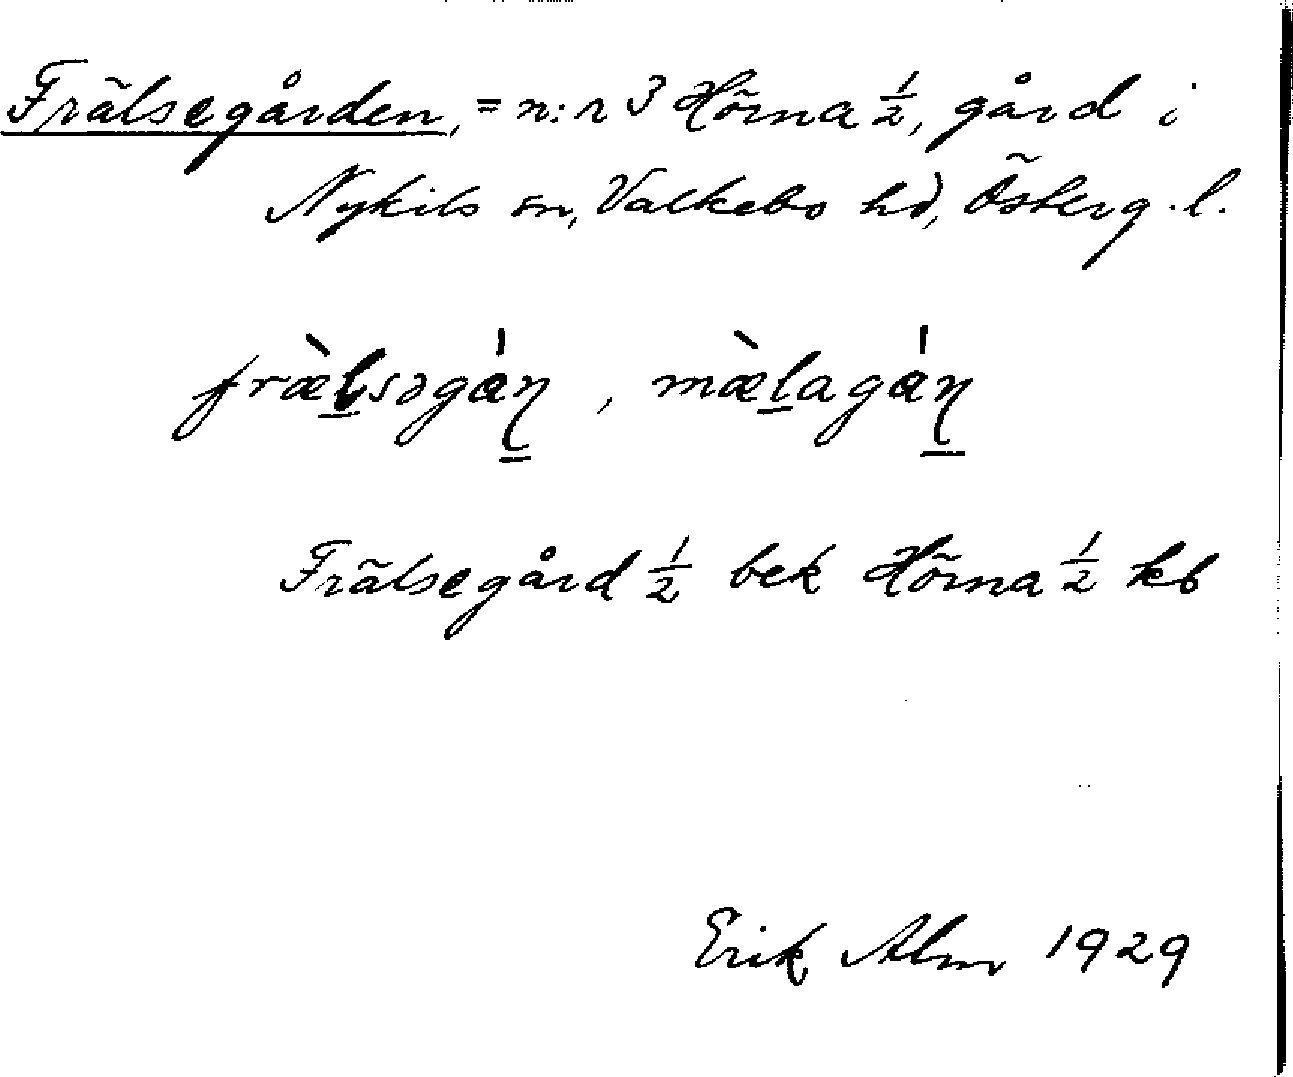 Frälsegården, = n:r 3 Hörna ½, gård i
Nykils sn, Valkebo hd, Österg. l.
fræ̀lsəgán, mæ̀lagán
Frälsegård ½ bek Hörna ½ kb
Erik Alm 1929